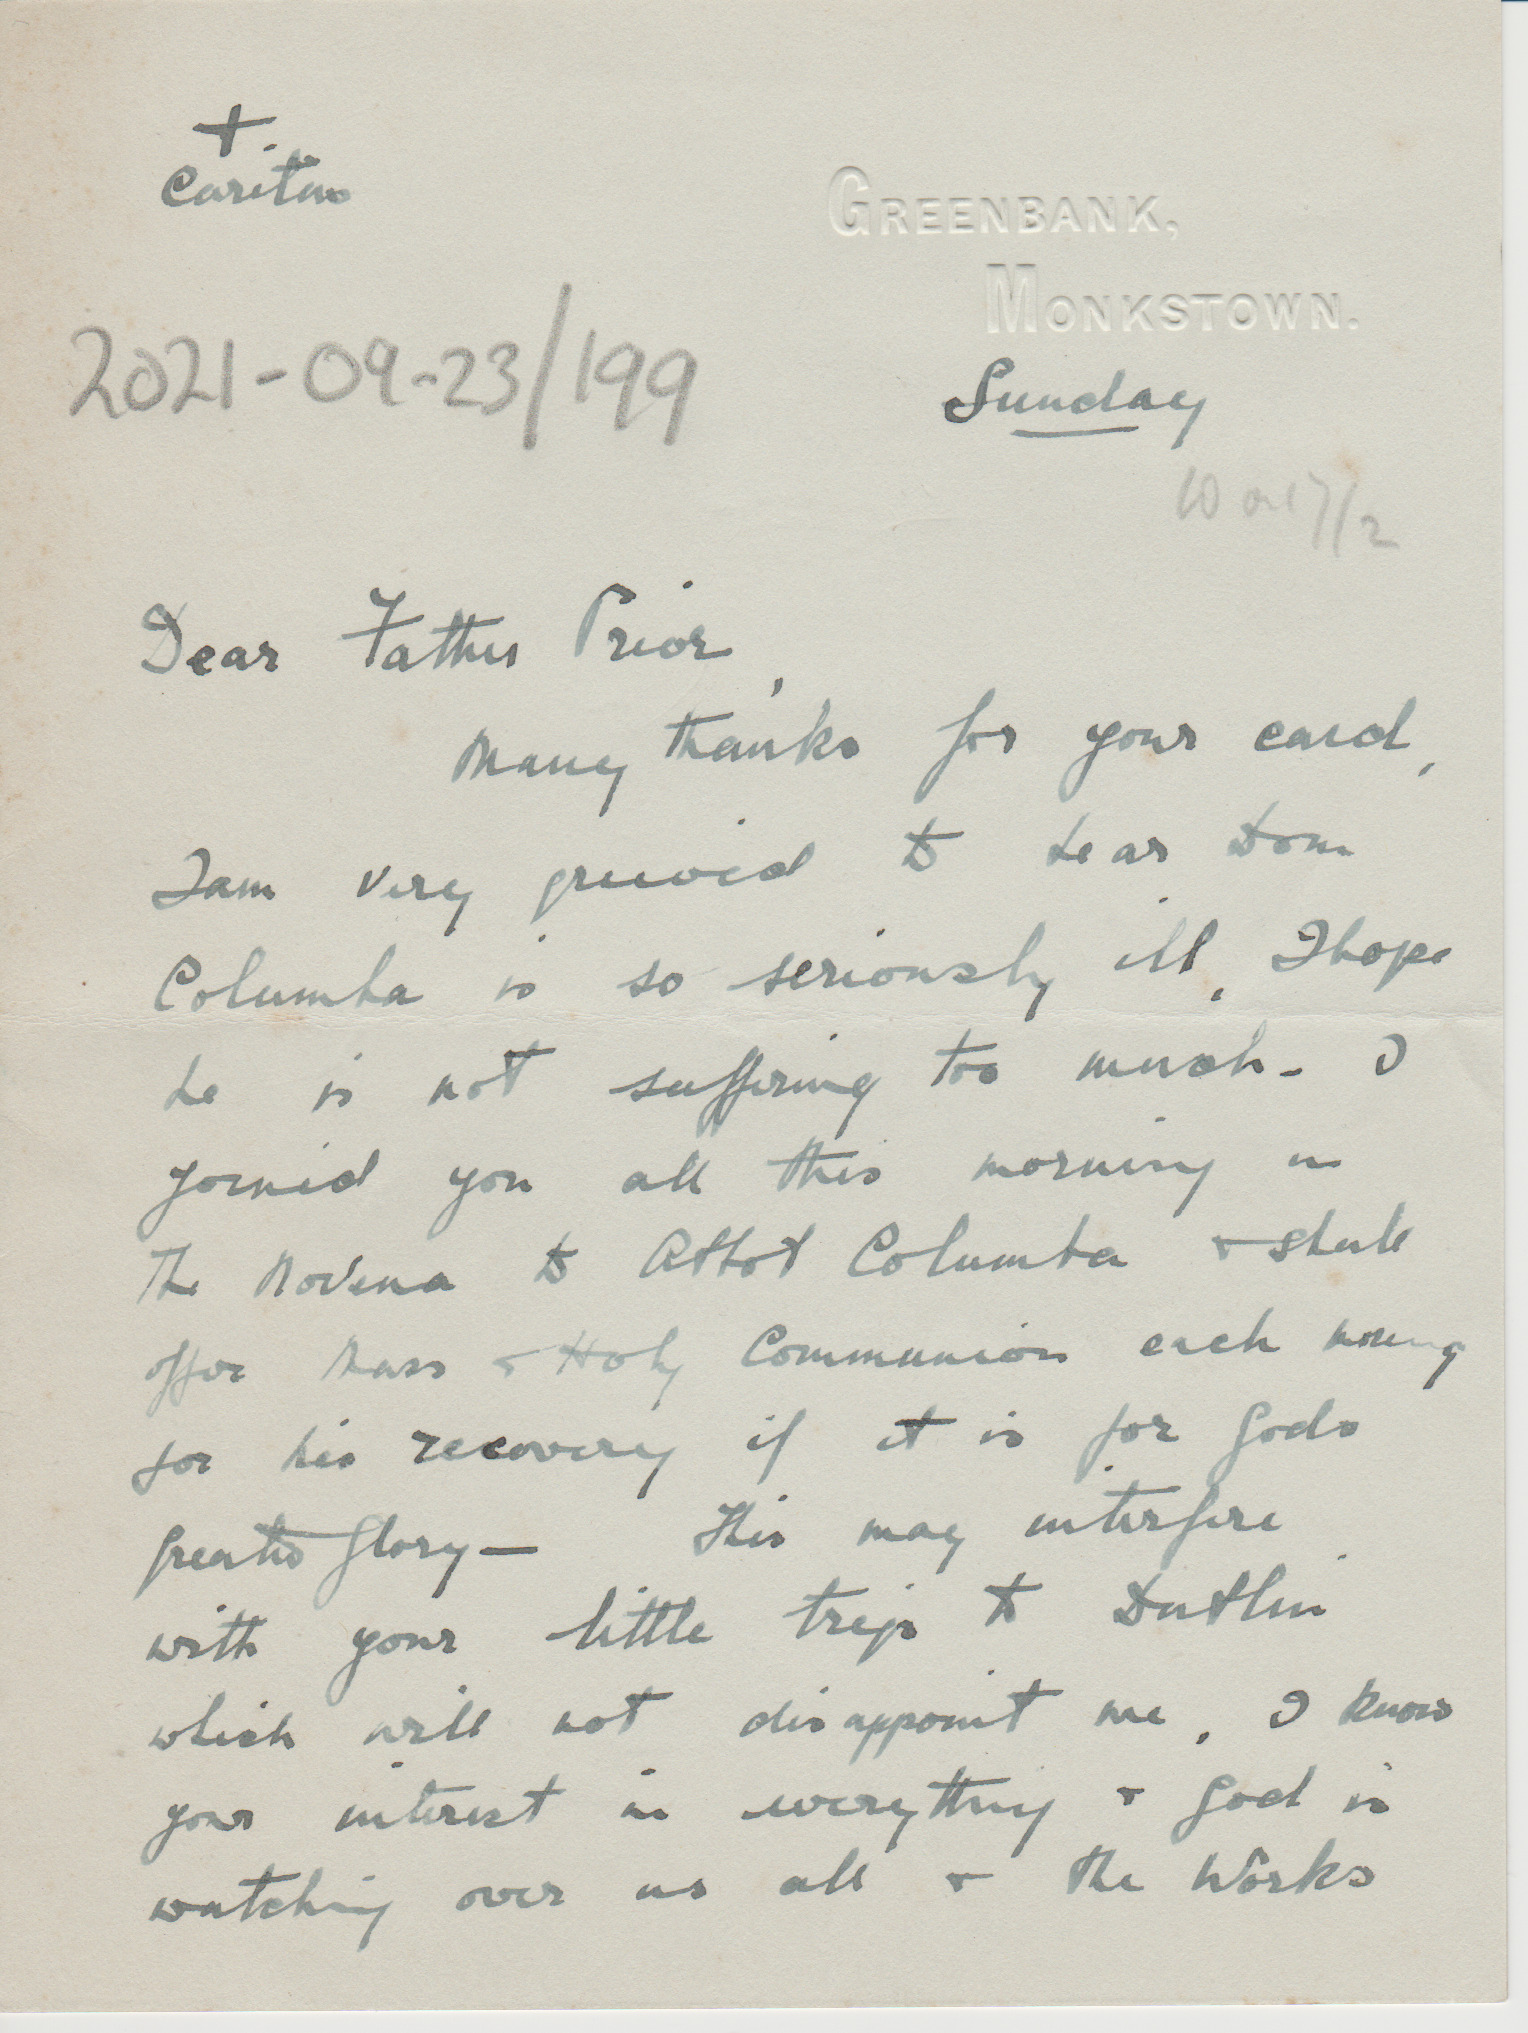 +
Caritas
GREENBANK,
MONKSTOWN.
2021-09-23/199
Sunday
Dear Father Prior,
Many thanks for your card,
I am very grieved to hear Dom
Columba is so seriously ill, I hope
he is not suffering too much - I
joined you all this morning in
the Novena to Abbot Columba & shall
offer Mass & Holy Communion each morning
for his recovery if it is for Gods
greater glory — This may interfere
with your little trip to Dublin
which will not disappoint me, I know
your interest in everything & God is
watching over us all & the works